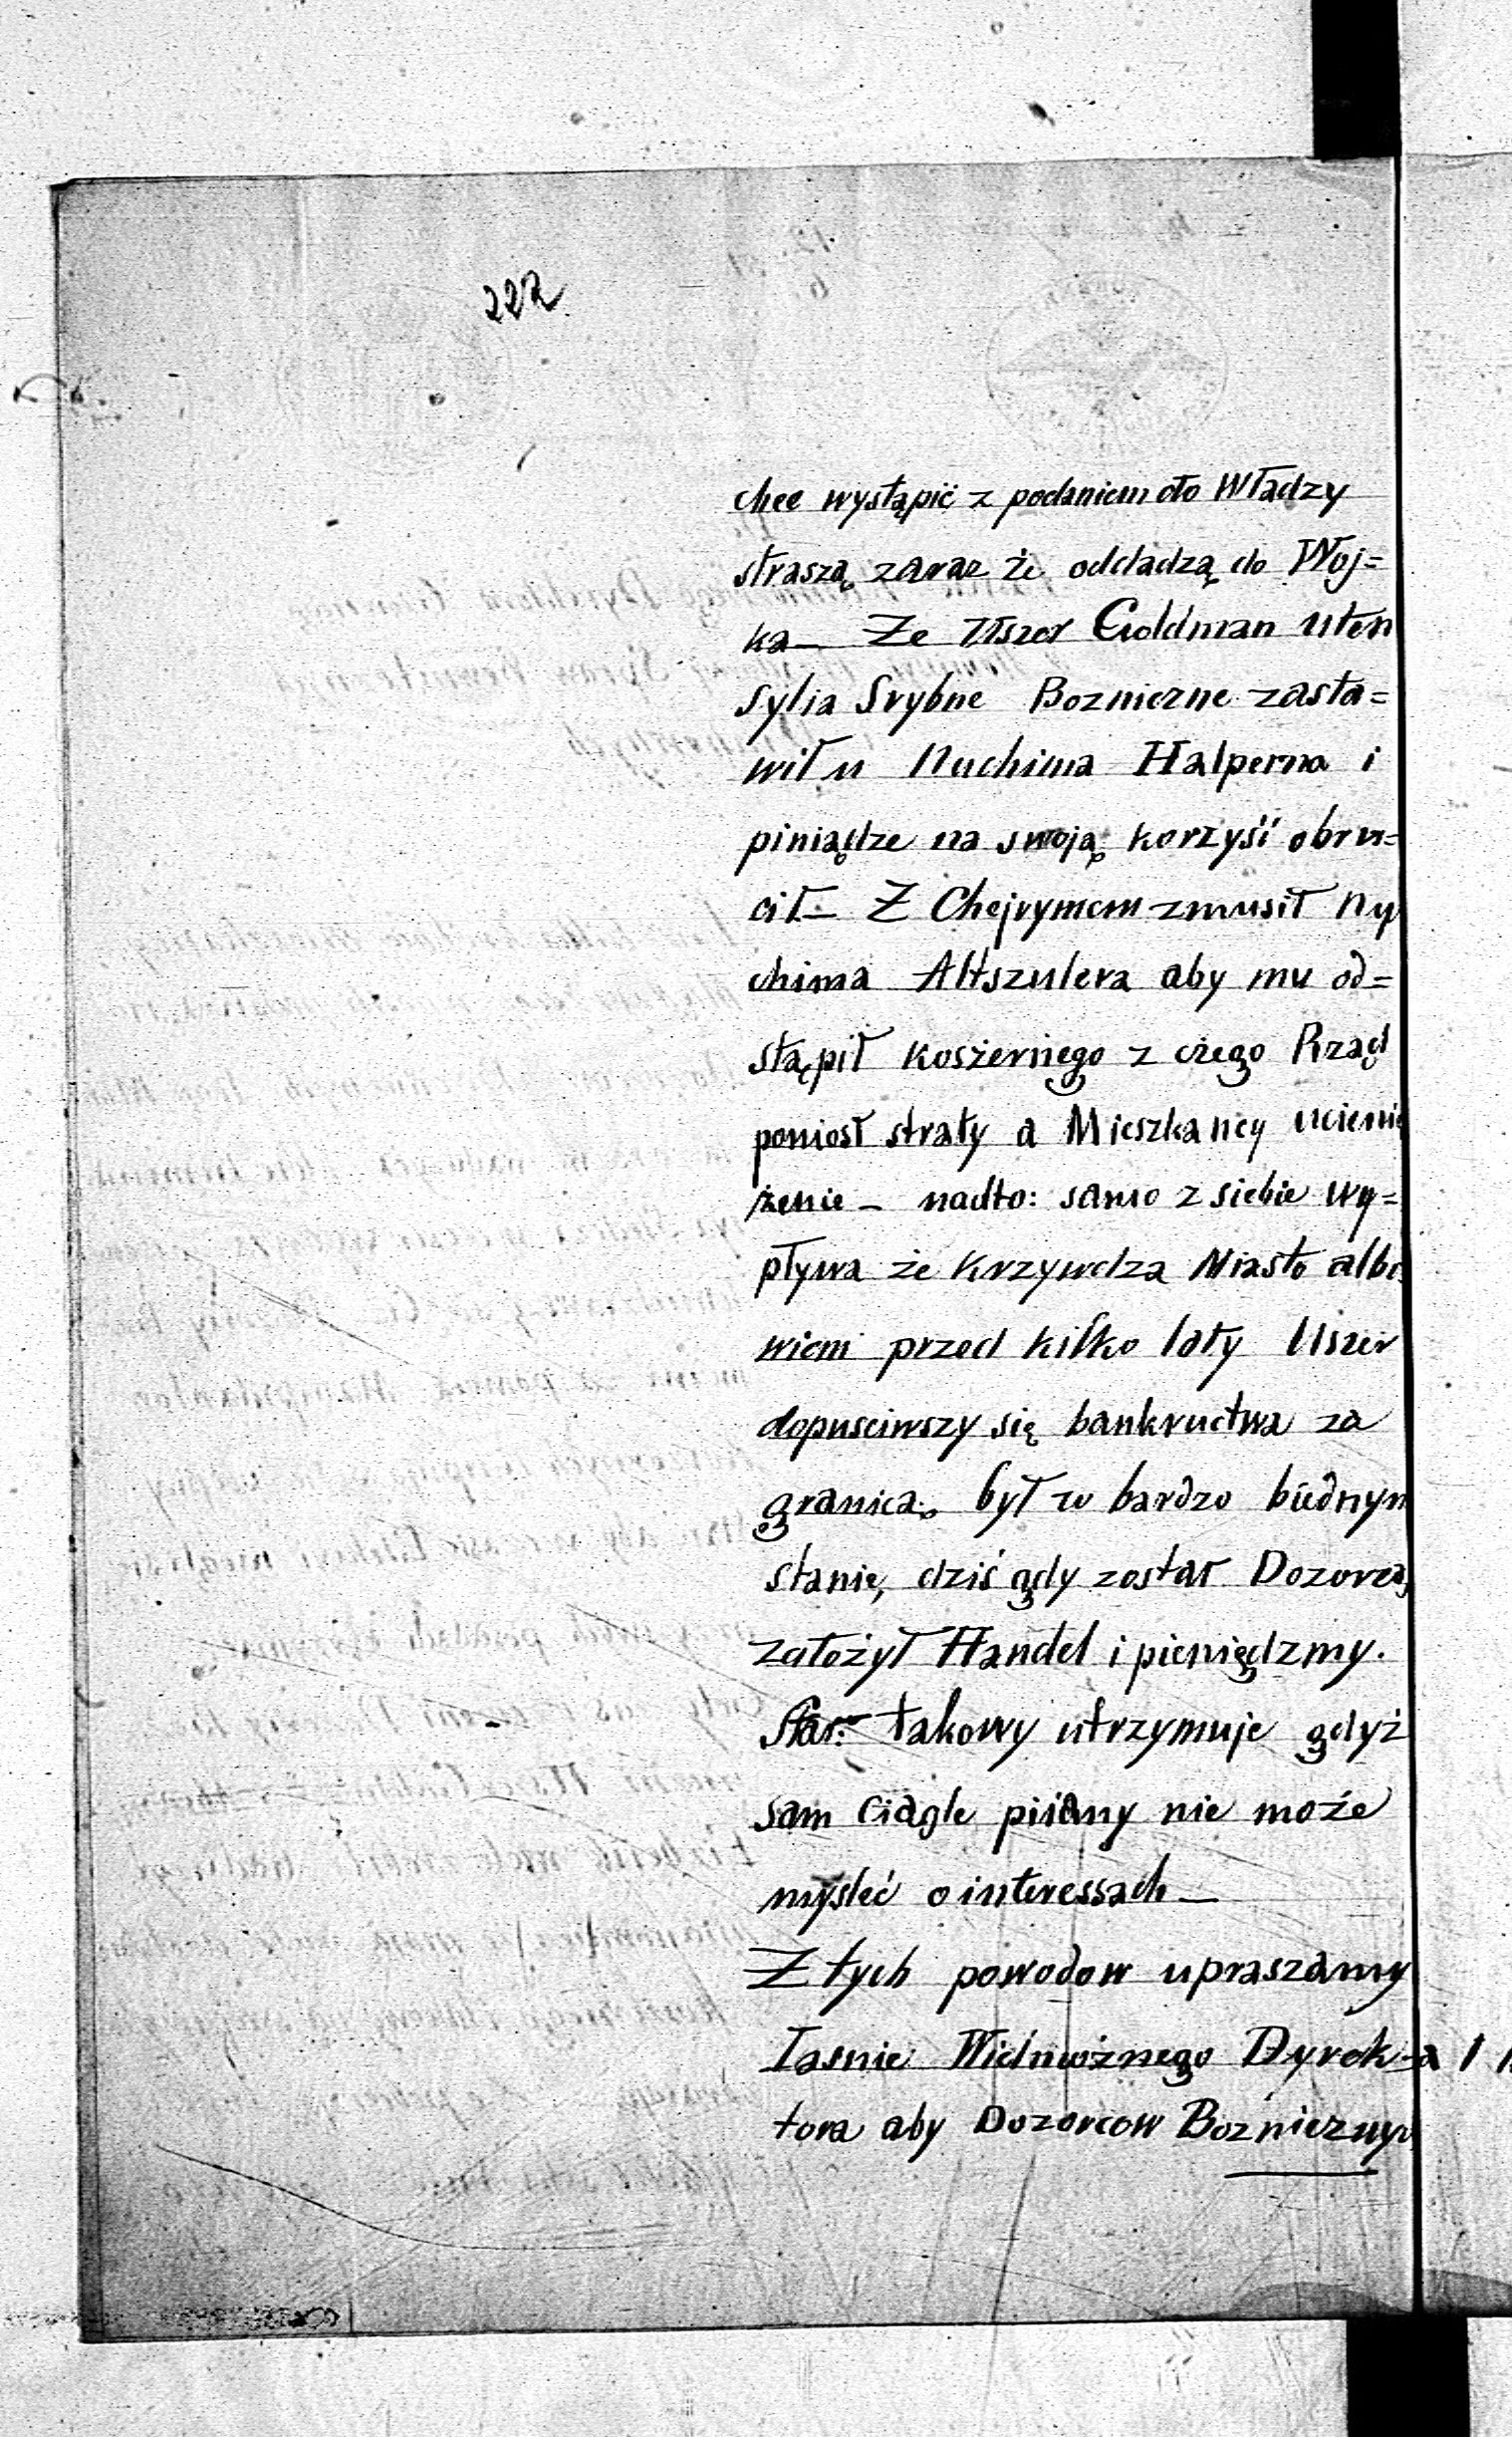 222
chce wystąpić z podaniem do Władzy
straszą zaraz że oddadzą do Woj=
ka— Ze Uszer Goldman uten
sylia Srybne Bozniczne zasta=
wił u Nuchima Halperna i
piniądze na swoją korzyść obru=
cił— Z Chejrymem zmusił Nu
chima Altszulera aby mu od=
stąpił koszernego z czego Rząd
poniosł straty a Mieszkancy uciemię
żenie — nadto: samo z siebie wy=
pływa że krzywdza Miasto albo
wiem przed kilko laty Uszer
dopusciwszy się bankructwa za
granicą był w bardzo biednym
stanie, dziś gdy został Dozorcą
założył Handel i pieniędzmy.
takowy utrzymuje gdyż
sam ciagle pijany nie może
mysleć o interessach —
Z tych powodow upraszamy
Jasnie Wielmożnego Dyrek-
tora aby Dozorcow Bozniczny